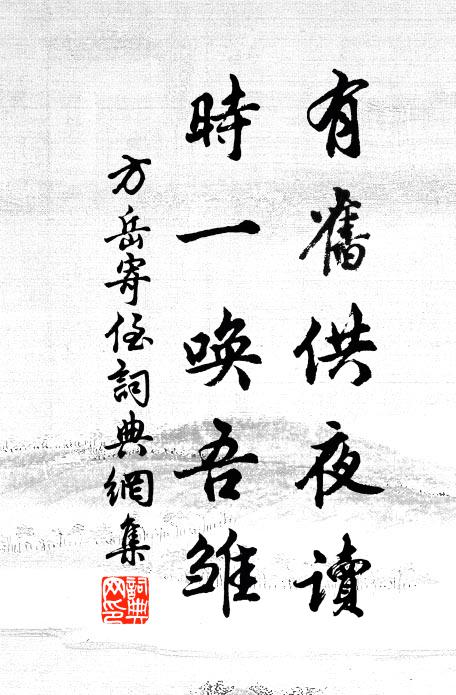 有舊供夜讀
時一喚吾雛
方岳寄侄詞典網集
詞典
網印